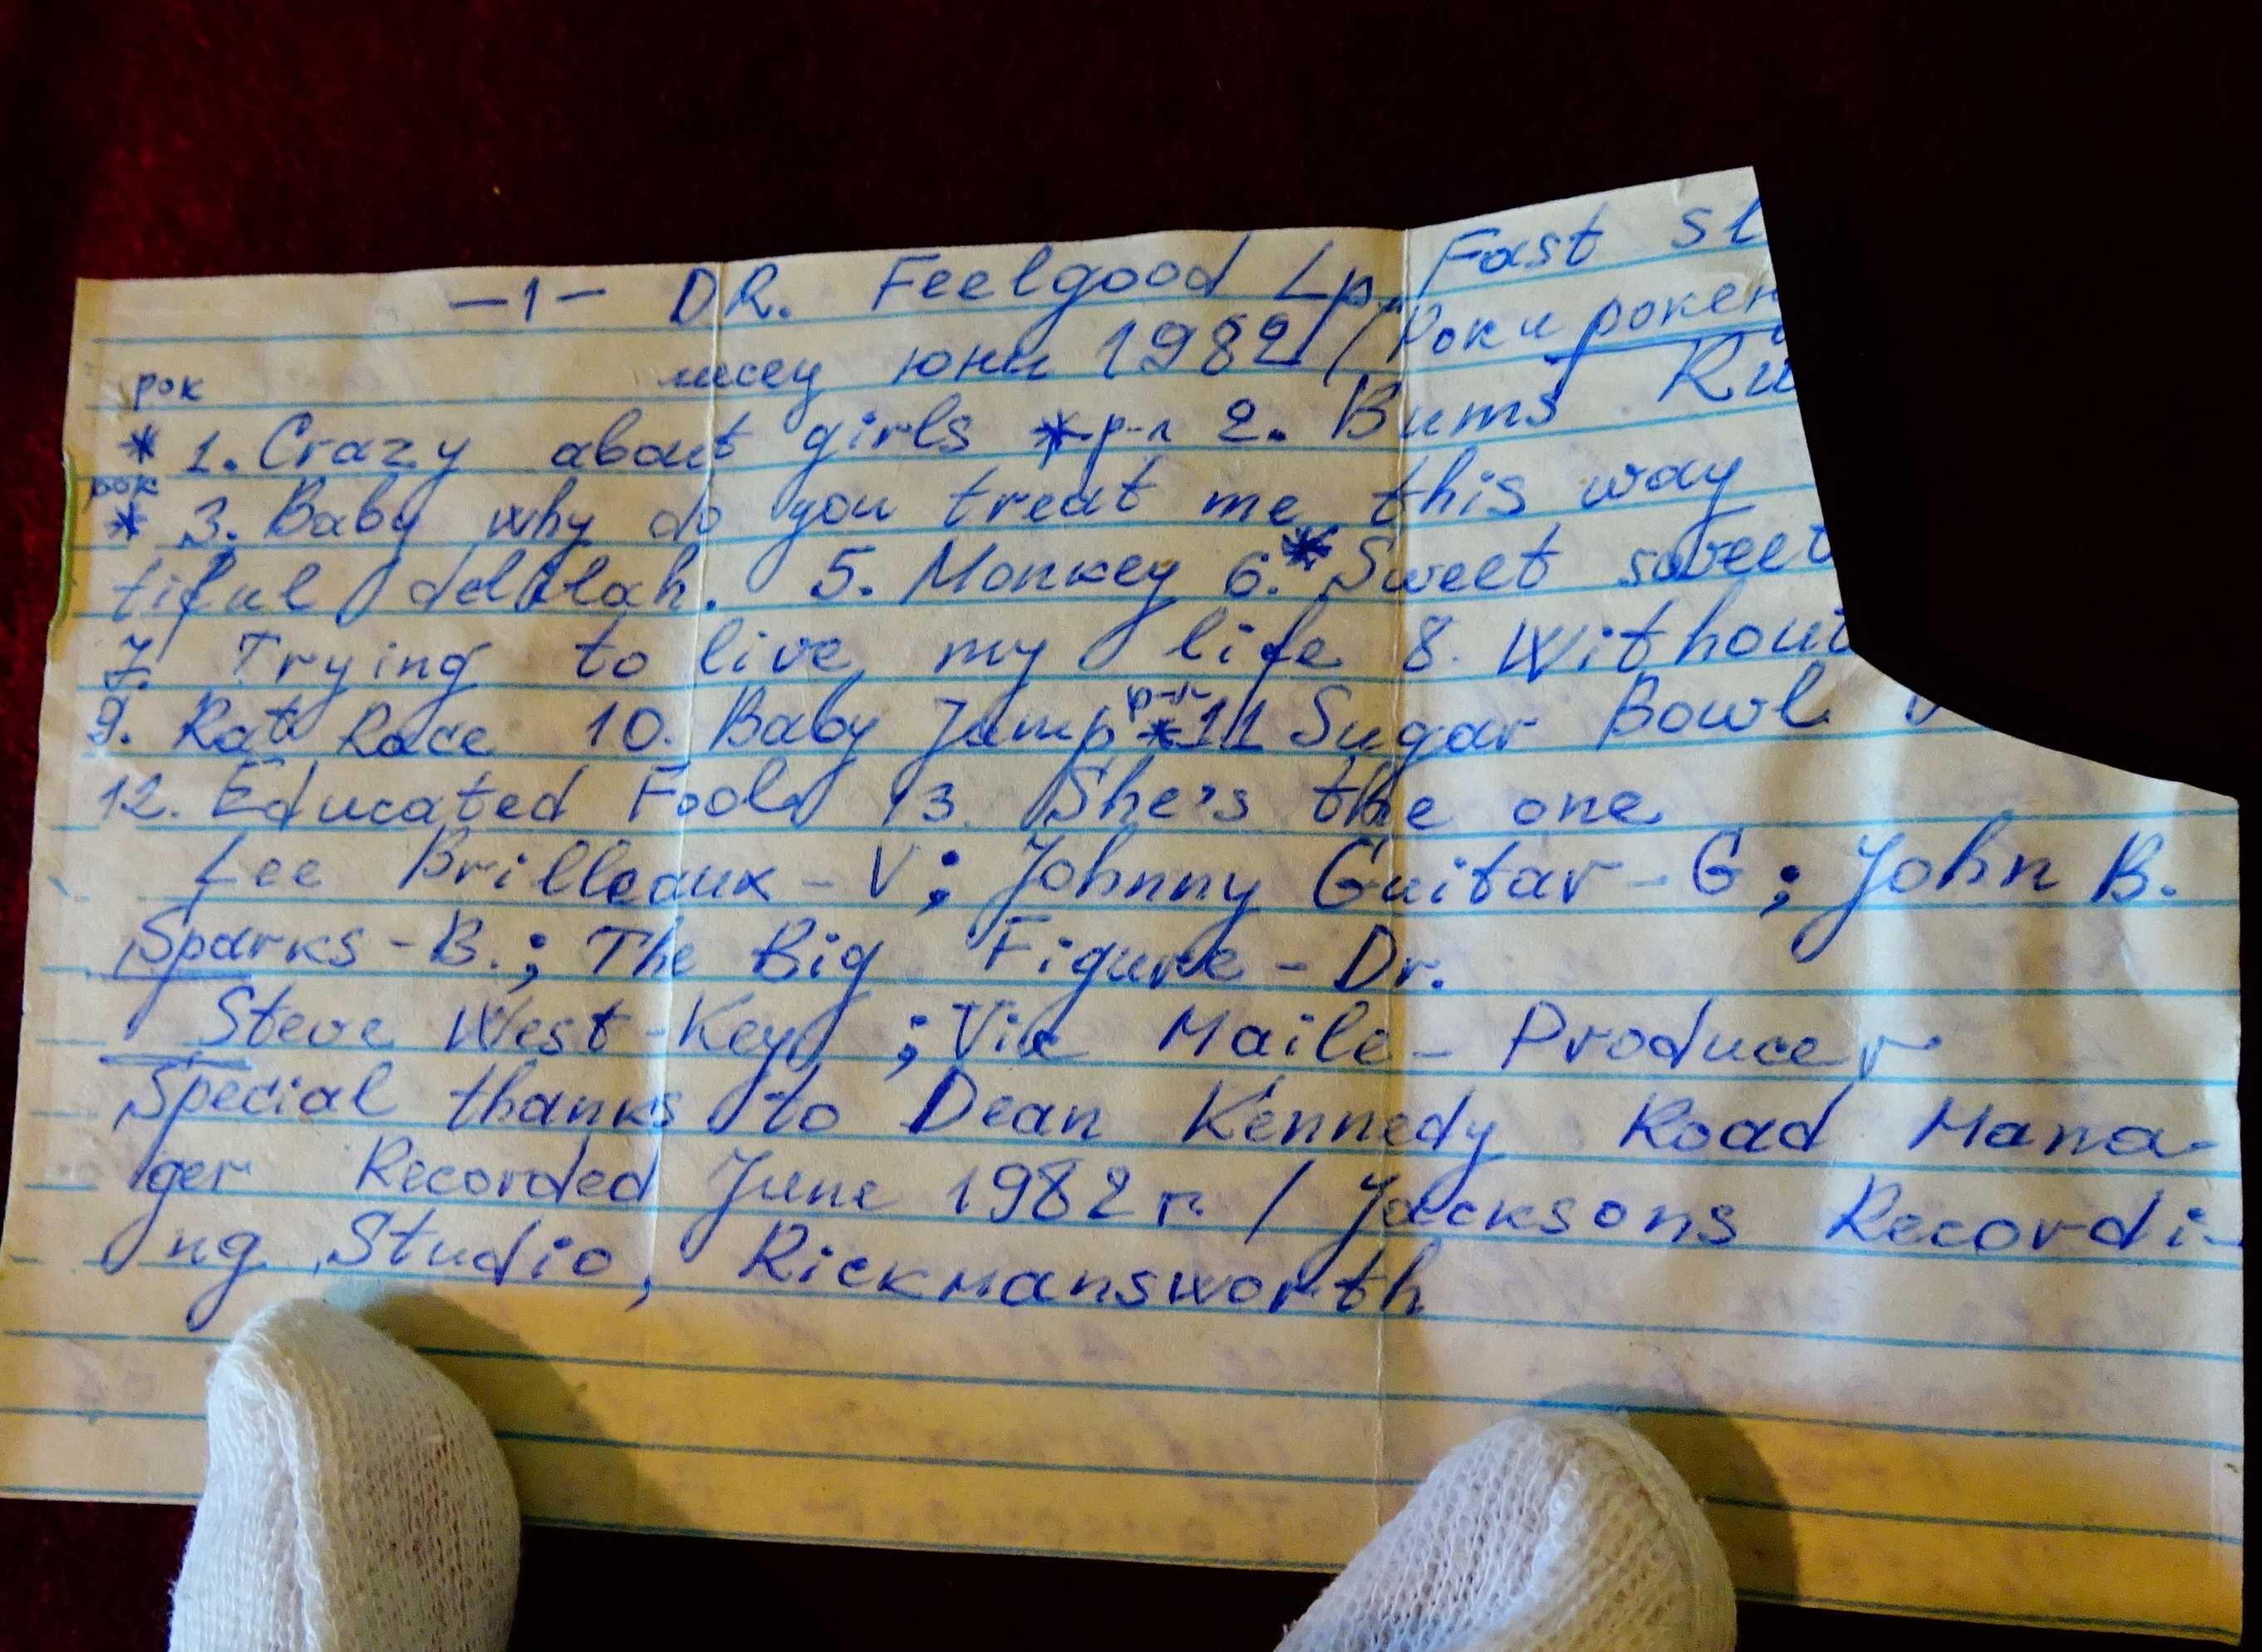 —1— DR. Feelgood Lp. Fast
юни 1982 / Рок и рокен
рок
* 1. Crazy about girls * р-л 2. Bums
рок
* 3. Baby why do you treat me this way
tiful delilah. 5. Monkey 6.* Sweet sweet
7. Trying to live my life 8. Without
9. Rat Race 10. Baby Jump * 11 Sugar Bowl
12. Educated Fool 13. She's the one
Lee Brilleaux - V; Johnny Guitar - G; John B.
Sparks - B.; The Big Figure - Dr.
Steve West - Key; Vic Maile - Producer
Special thanks to Dean Kennedy Road Mana-
ger Recorded June 1982 г. / Jacksons Recordi-
ng Studio, Rickmansworth